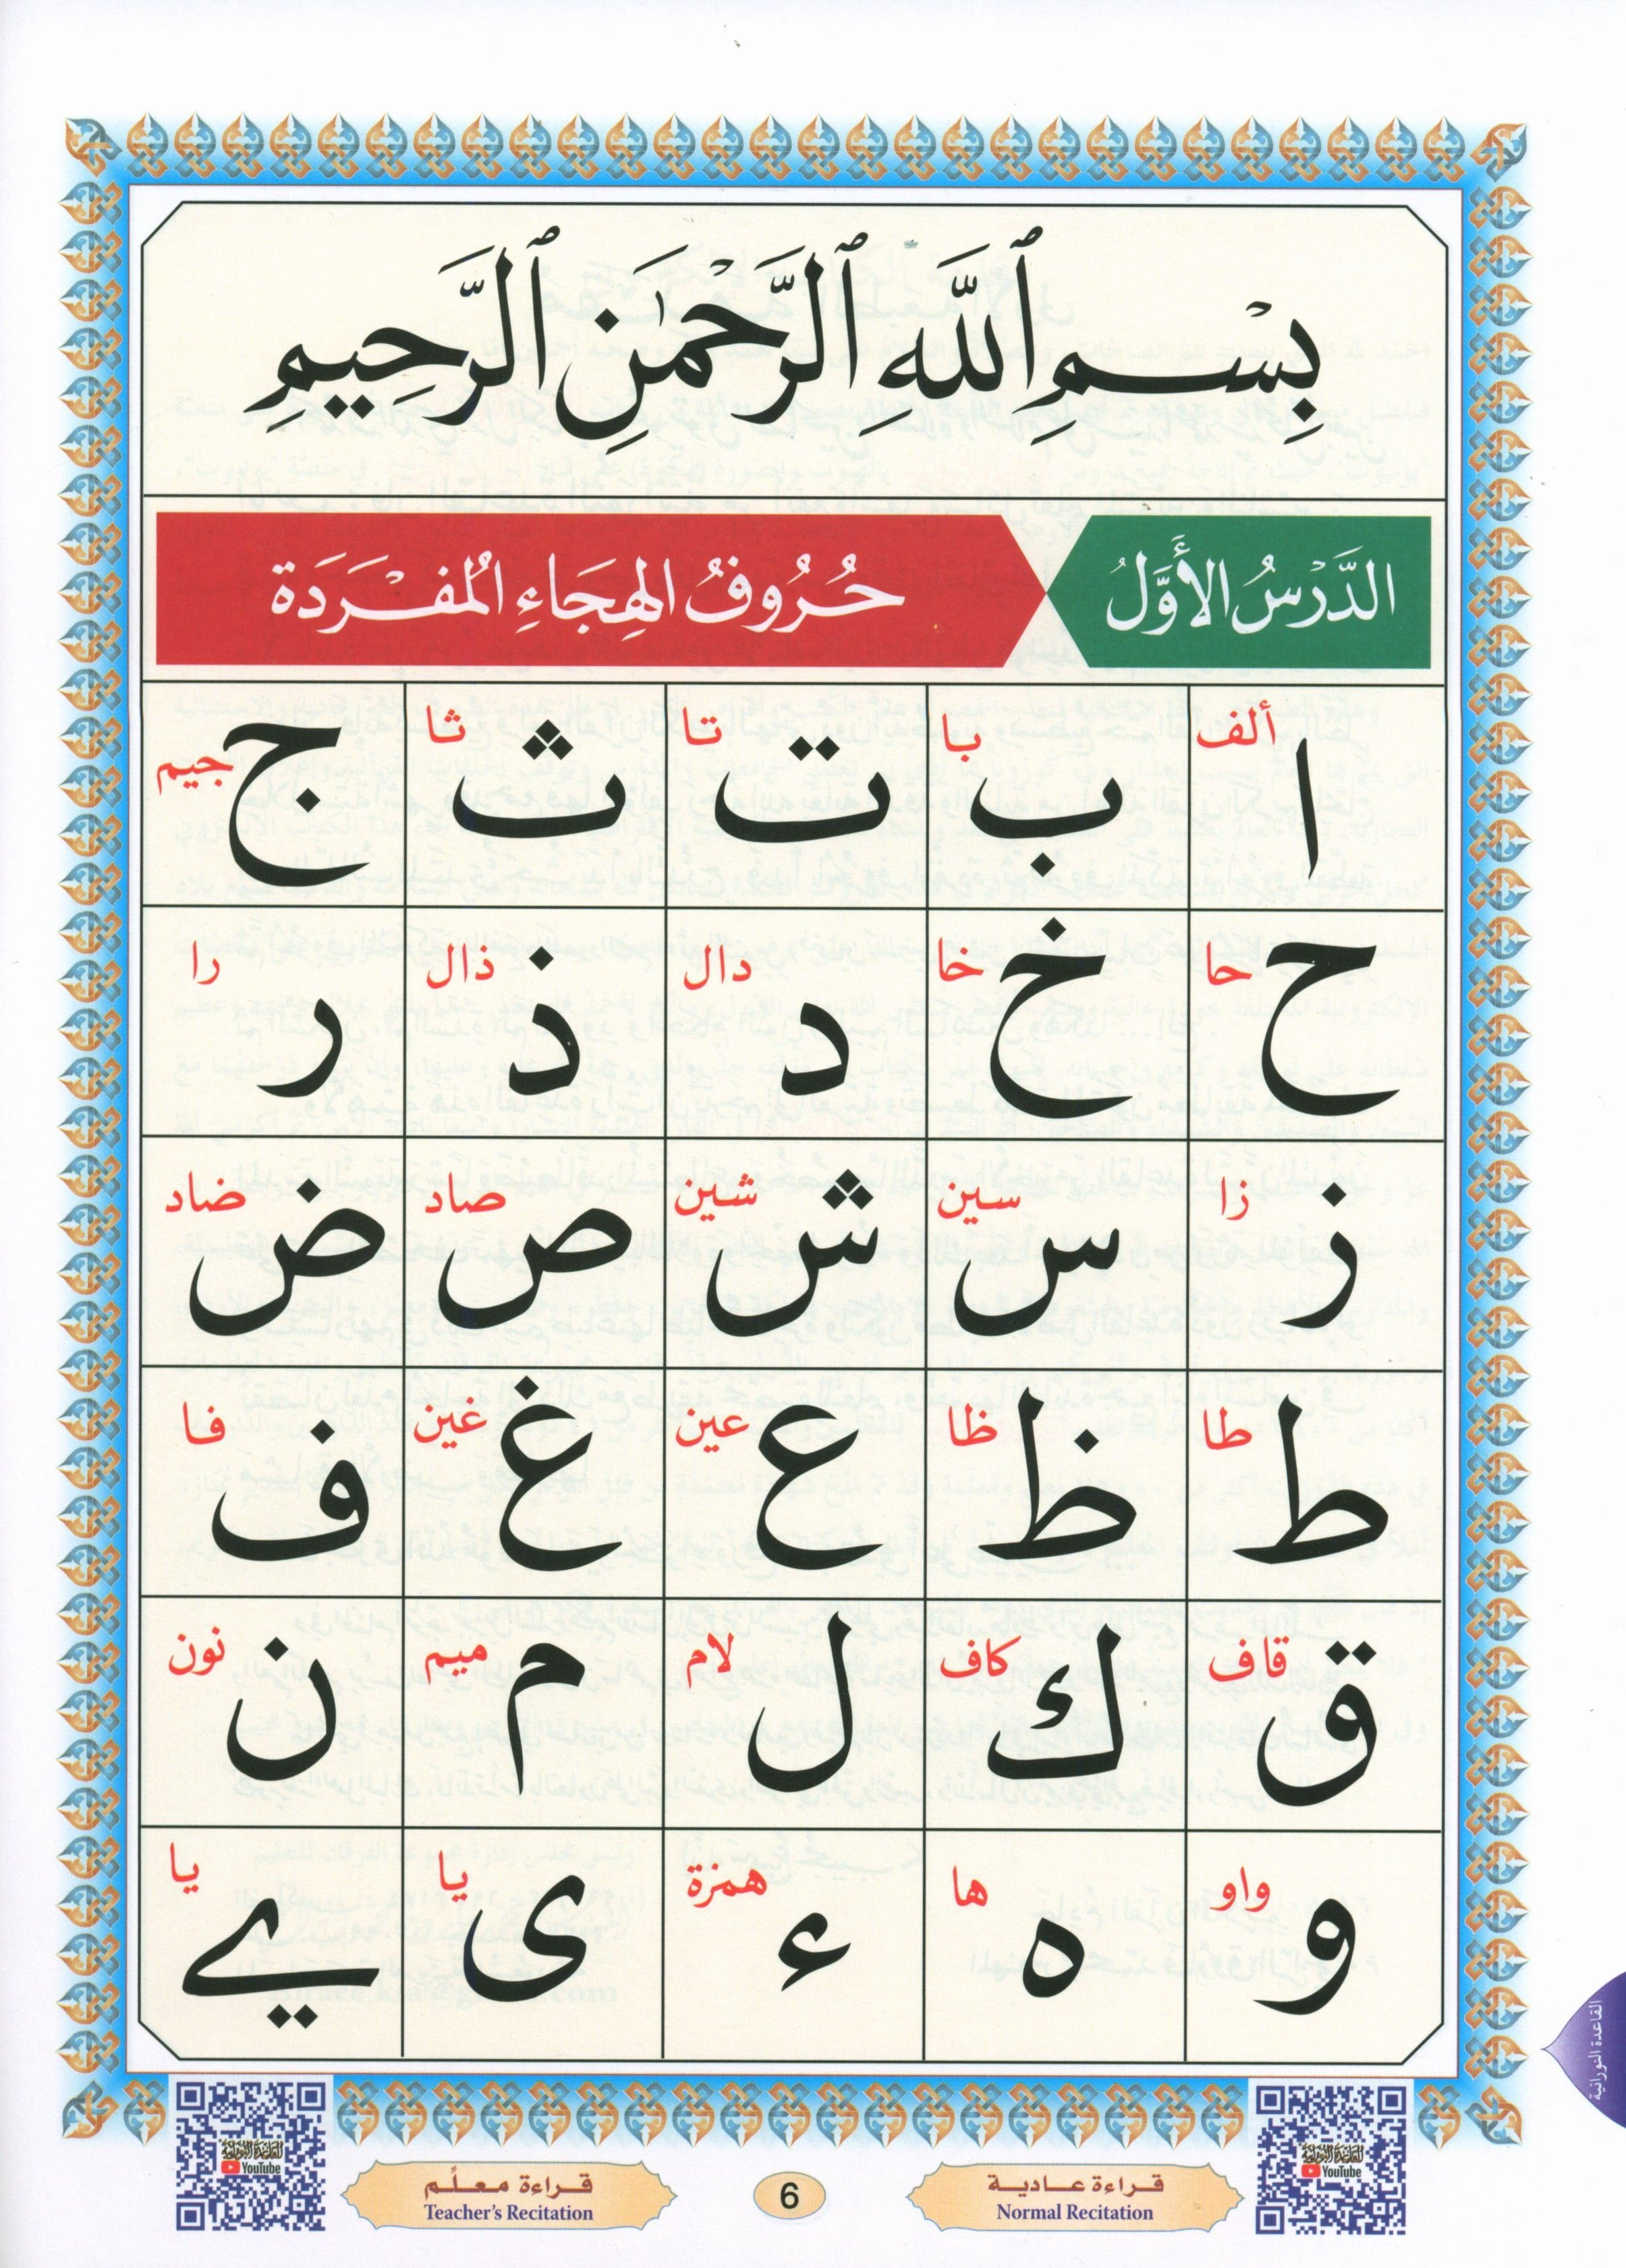 بِسْمِ ٱللَّهِ ٱلرَّحْمَٰنِ ٱلرَّحِيمِ
الدَّرْسُ الأَوَّلُ حُرُوفُ الهِجَاءِ المُفْرَدَة
ألف ا با ب تا ت ثا ث جيم ج
حا ح خا خ دال د ذال ذ را ر
زا ز سين س شين ش صاد ص ضاد ض
طا ط ظا ظ عين ع غين غ فا ف
قاف ق كاف ك لام ل ميم م نون ن
واو و ها ه همزة ء يا ى يا ے
القاعدة النورانية
القاعدة النورانية
YouTube
قراءة عادية
Normal Recitation
6
قراءة معلِّم
Teacher's Recitation
القاعدة النورانية
YouTube